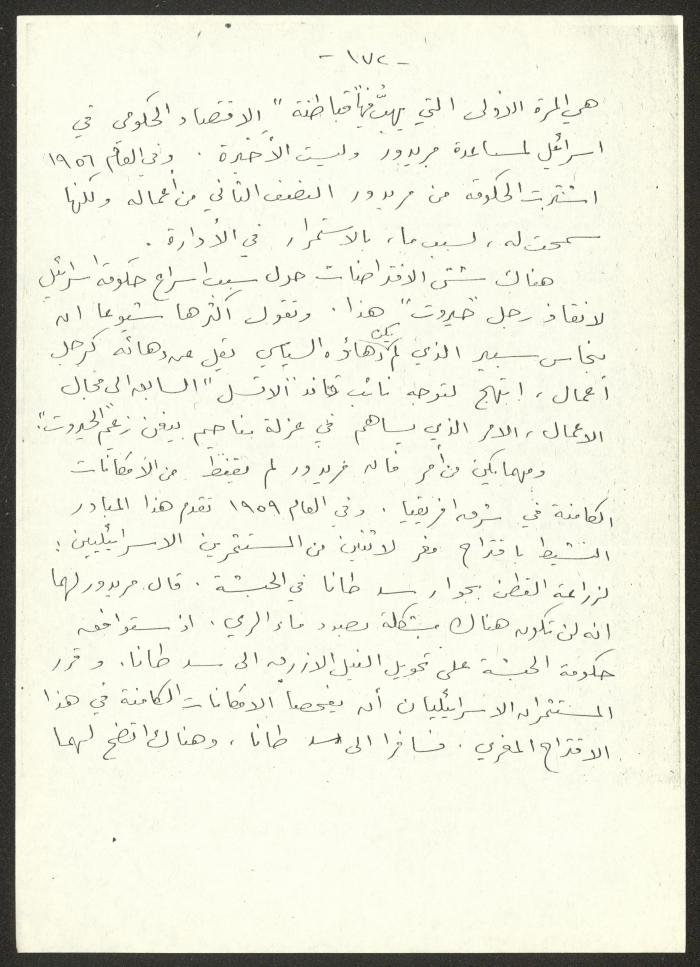 - ١٧٢ -
هي المرة الاولى التي يهبّ فيها "قباطنة" الاقتصاد الحكومي في
اسرائيل لمساعدة مريدور وليست الأخيرة . وفي العام ١٩٥٦
اشترت الحكومة من مريدور النصف الثاني من أعماله ولكنها
سمحت له ، لسبب ما ، بالاستمرار في الأدارة .
هناك شتى الافتراضات حول سبب اسراع حكومة اسرائيل
لانقاذ رجل "حيروت" هذا . وتقول اكثرها شيوعا ان
بنحاس سبير الذي لم يكن دهاؤه السياسي يقل عن دهائه كرجل
أعمال ، ابتهج لتوجه نائب قائد "الاتسل" السابق الى مجال
الاعمال ، الامر الذي يساهم في عزلة مناحيم بيغن زعيم الحيروت :
ومهما يكن من أمر فان مريدور لم تقتصر من الأمكانات
الكامنة في شرق افريقيا . وفي العام ١٩٥٩ تقدم هذا المبادر
النشيط باقتراح مغر لاثنين من المستثمرين الاسرائيليين :
لزراعة القطن بجوار سد طانا في الحبشة . قال مريدور لهما
انه لن تكون هناك مشكلة بصدد ماء الري . اذ ستوافق
حكومة الحبشة على تحويل النيل الازرق الى سد طانا . وقرر
المستثمران الاسرائيليان أن يفحصا الامكانات الكامنة في هذا
الاقتراح المغري . فسافرا الى سد طانا ، وهناك اتضح لهما